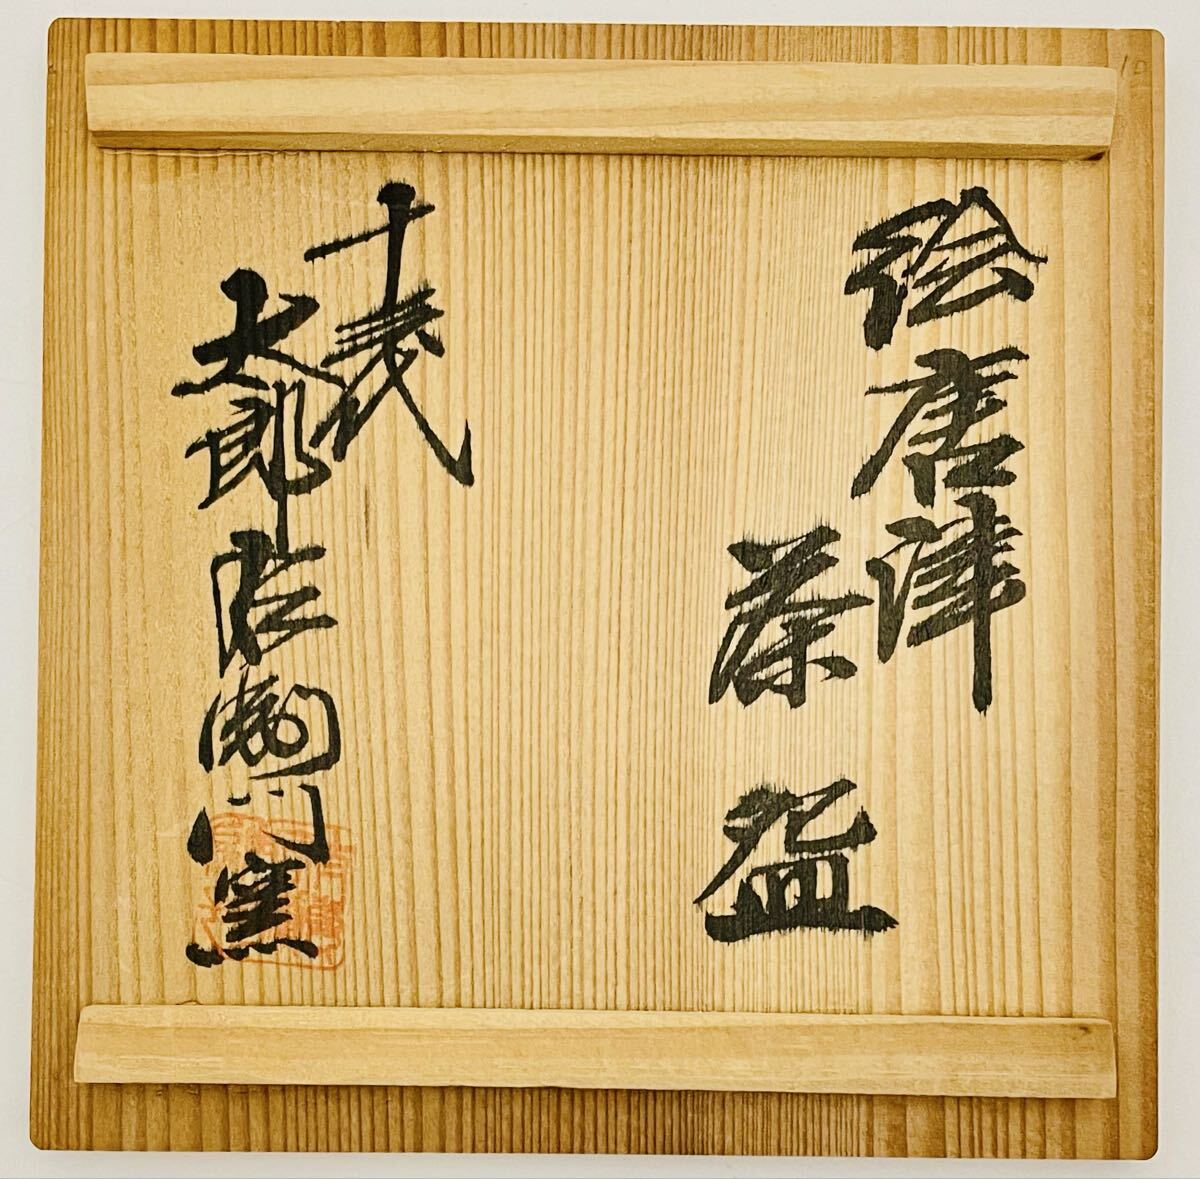 絵唐津
茶盌
十三代
太郎右衛門窯